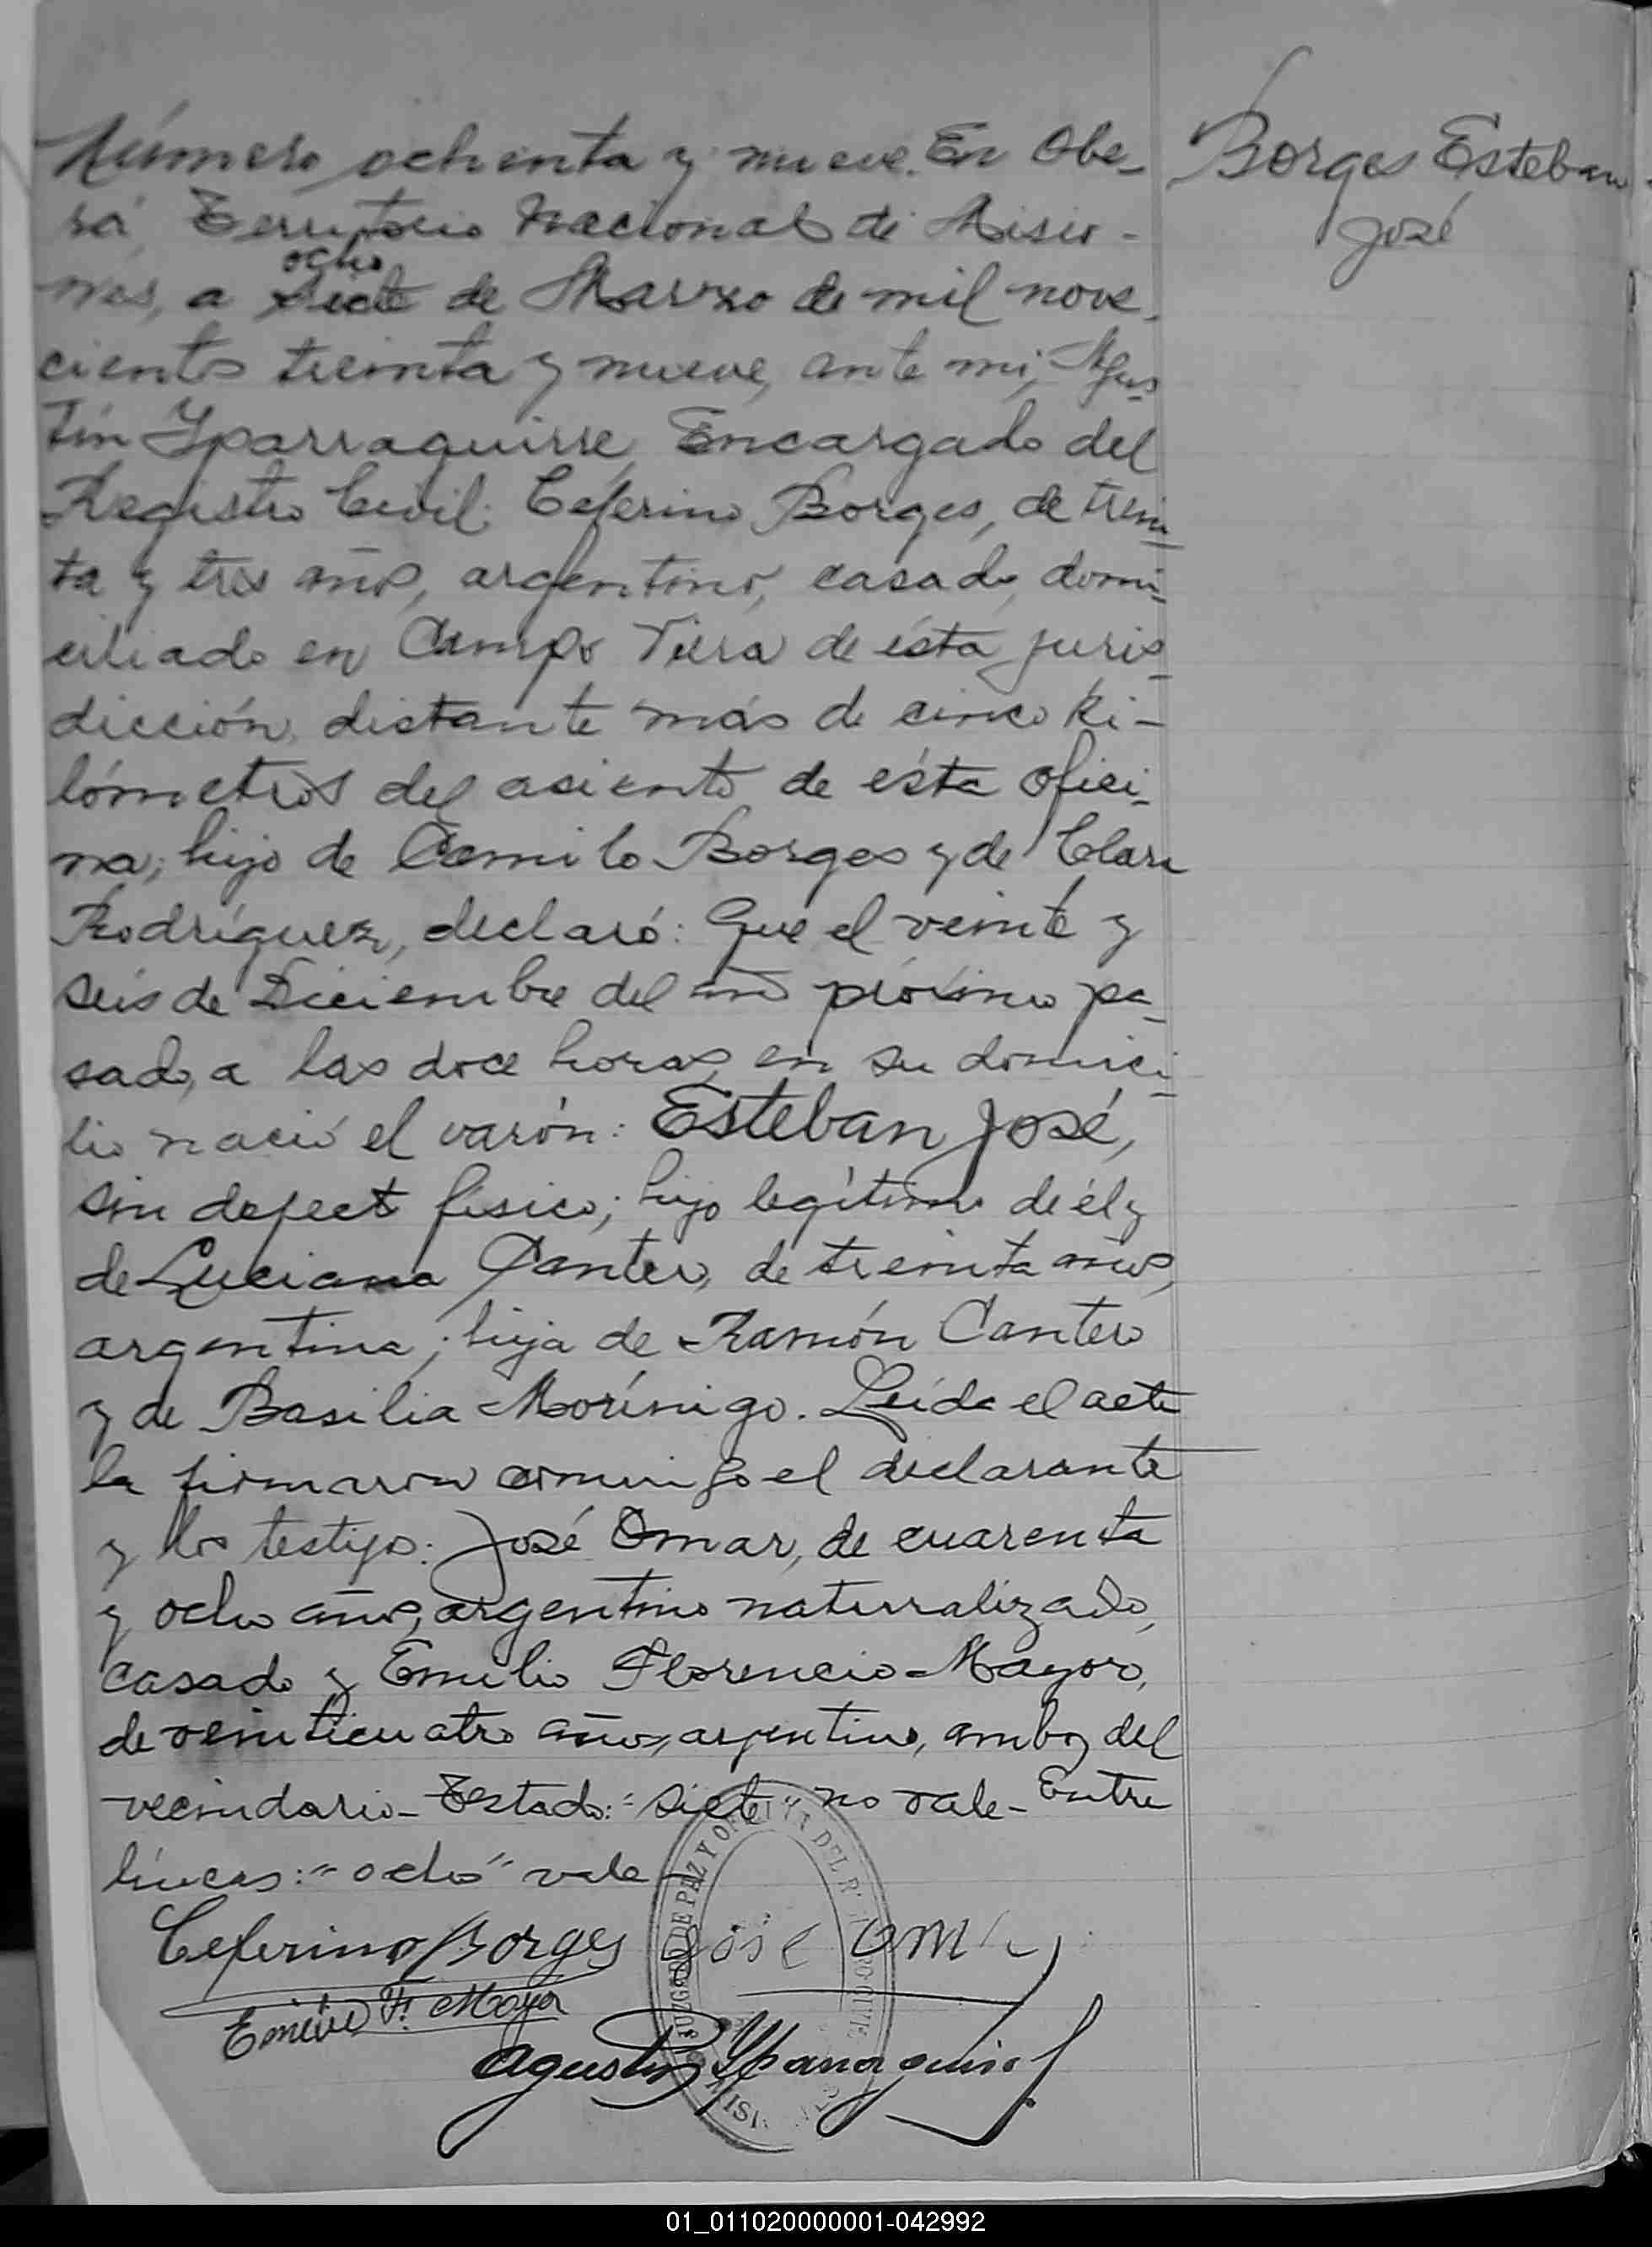 Número ochenta y nueve. En Obe-
rá, Territorio Nacional de Misio-
nes, a siete ocho de Marzo de mil nove-
cientos treinta y nueve, ante mi, Agus-
tín Yparraguirre, Encargado del
Registro Civil: Ceferino Borges, de trein-
ta y tres años, argentino, casado, domi-
ciliado en Campo Viera de ésta juris-
dicción, distante más de cinco ki-
lómetros del asiento de ésta ofici-
na; hijo de Camilo Borges y de Clara
Rodríguez, declaró: Que el veinte y
seis de Diciembre del año próximo pa-
sado, a las doce horas, en su domici-
lio nació el varón: Esteban José,
sin defecto físico; hijo legítimo de él y
de Luciana Cantero, de treinta años,
argentina; hija de Ramón Cantero
y de Basilia Morínigo. Leída el acta
la firmaron conmigo el declarante
y los testigos: José Omar, de cuarenta
y ocho años, argentino naturalizado,
casado y Emilio Florencio Mayor,
de veinticuatro años, argentino, ambos del
vecindario- Testado: "siete" no vale- Entre
líneas: "ocho" vale-
Borges Esteban
José
Ceferino Borges José Omar
Emilio F. Mayor
Agustín Yparraguirre
JUZGADO DE PAZ Y OFICINA DEL R
01_011020000001-042992